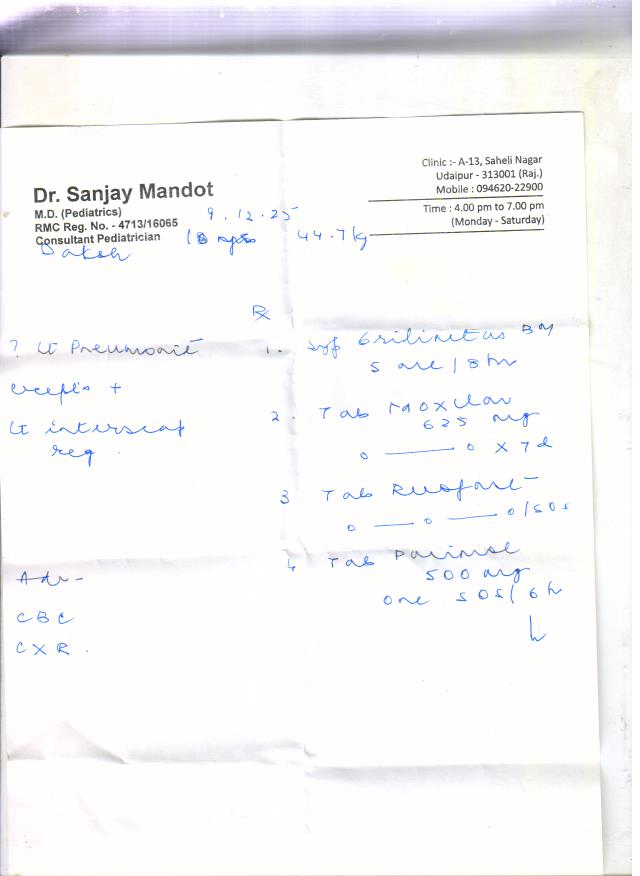 Clinic :- A-13, Saheli Nagar
Udaipur - 313001 (Raj.)
Mobile : 094620-22900
Time : 4.00 pm to 7.00 pm
(Monday - Saturday)
Dr. Sanjay Mandot
M.D. (Pediatrics)
RMC Reg. No. - 4713/16065
Consultant Pediatrician
9.12.25
Daksh
44.7 kg
Rx
? Lt Pneumonia
1. Syp BM
5 / 8 hr
crepts +
2. Tab Moxclav
625 mg
Lt interscap
reg
o — o x 7d
3 Tab
o — o — o / SOS
4 Tab
500 mg
one SOS / 6 h
Adv-
CBC
CXR.